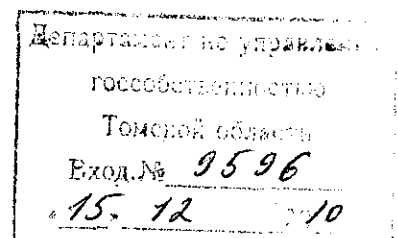 Департамент по управлению
госсобственностью
Томской области
Вход.№ 9596
15. 12 10